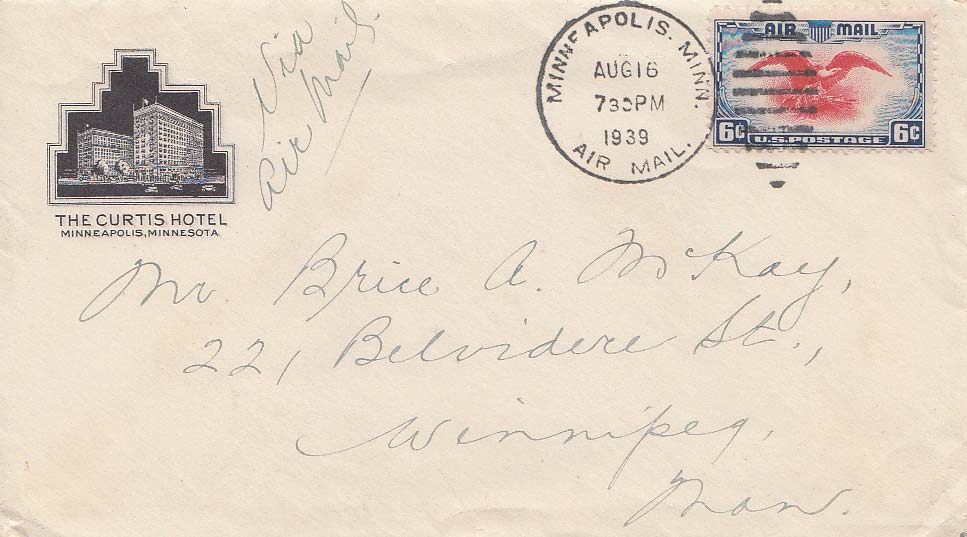 THE CURTIS HOTEL
MINNEAPOLIS, MINNESOTA
Via
Air Mail.
MINNEAPOLIS. MINN.
AUG 16
7 30 PM
1939
AIR MAIL.
AIR MAIL
6¢ U.S. POSTAGE 6¢
Mr. Brice A. McKay,
221 Belvidere St.,
Winnipeg,
Man.